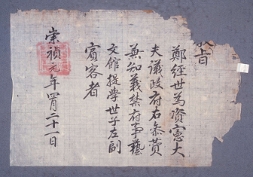 旨
鄭經世爲資憲大
夫議政府右參贊
兼知義禁府事藝
文館提學世子左副
賓客者
崇禎元年四月二十一日